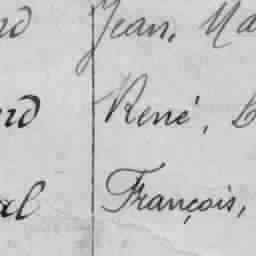 rd Jean, Ma
rd René, L
al François,